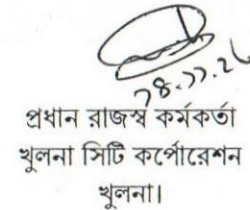 ২৪.১১.২৫
প্রধান রাজস্ব কর্মকর্তা
খুলনা সিটি কর্পোরেশন
খুলনা।